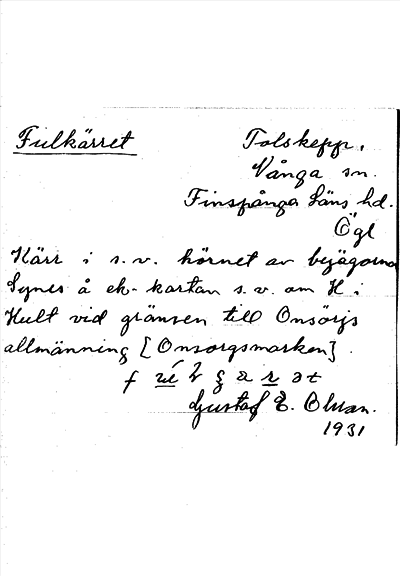 Fulkärret
Tolskepp.
Vånga sn.
Finspånga Läns hd.
Ögl
Kärr i s.v. hörnet av bejägorna
Synes å ek-kartan s.v. om H i
Hult vid gränsen till Onsörjs
allmänning [Onsorgsmarken].
Gustaf E. Olsson.
1931